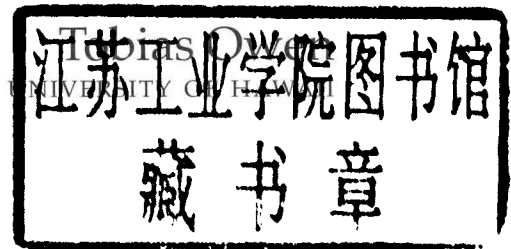 Tobias Owen
UNIVERSITY OF HAWAII
江苏工业学院图书馆
藏书章